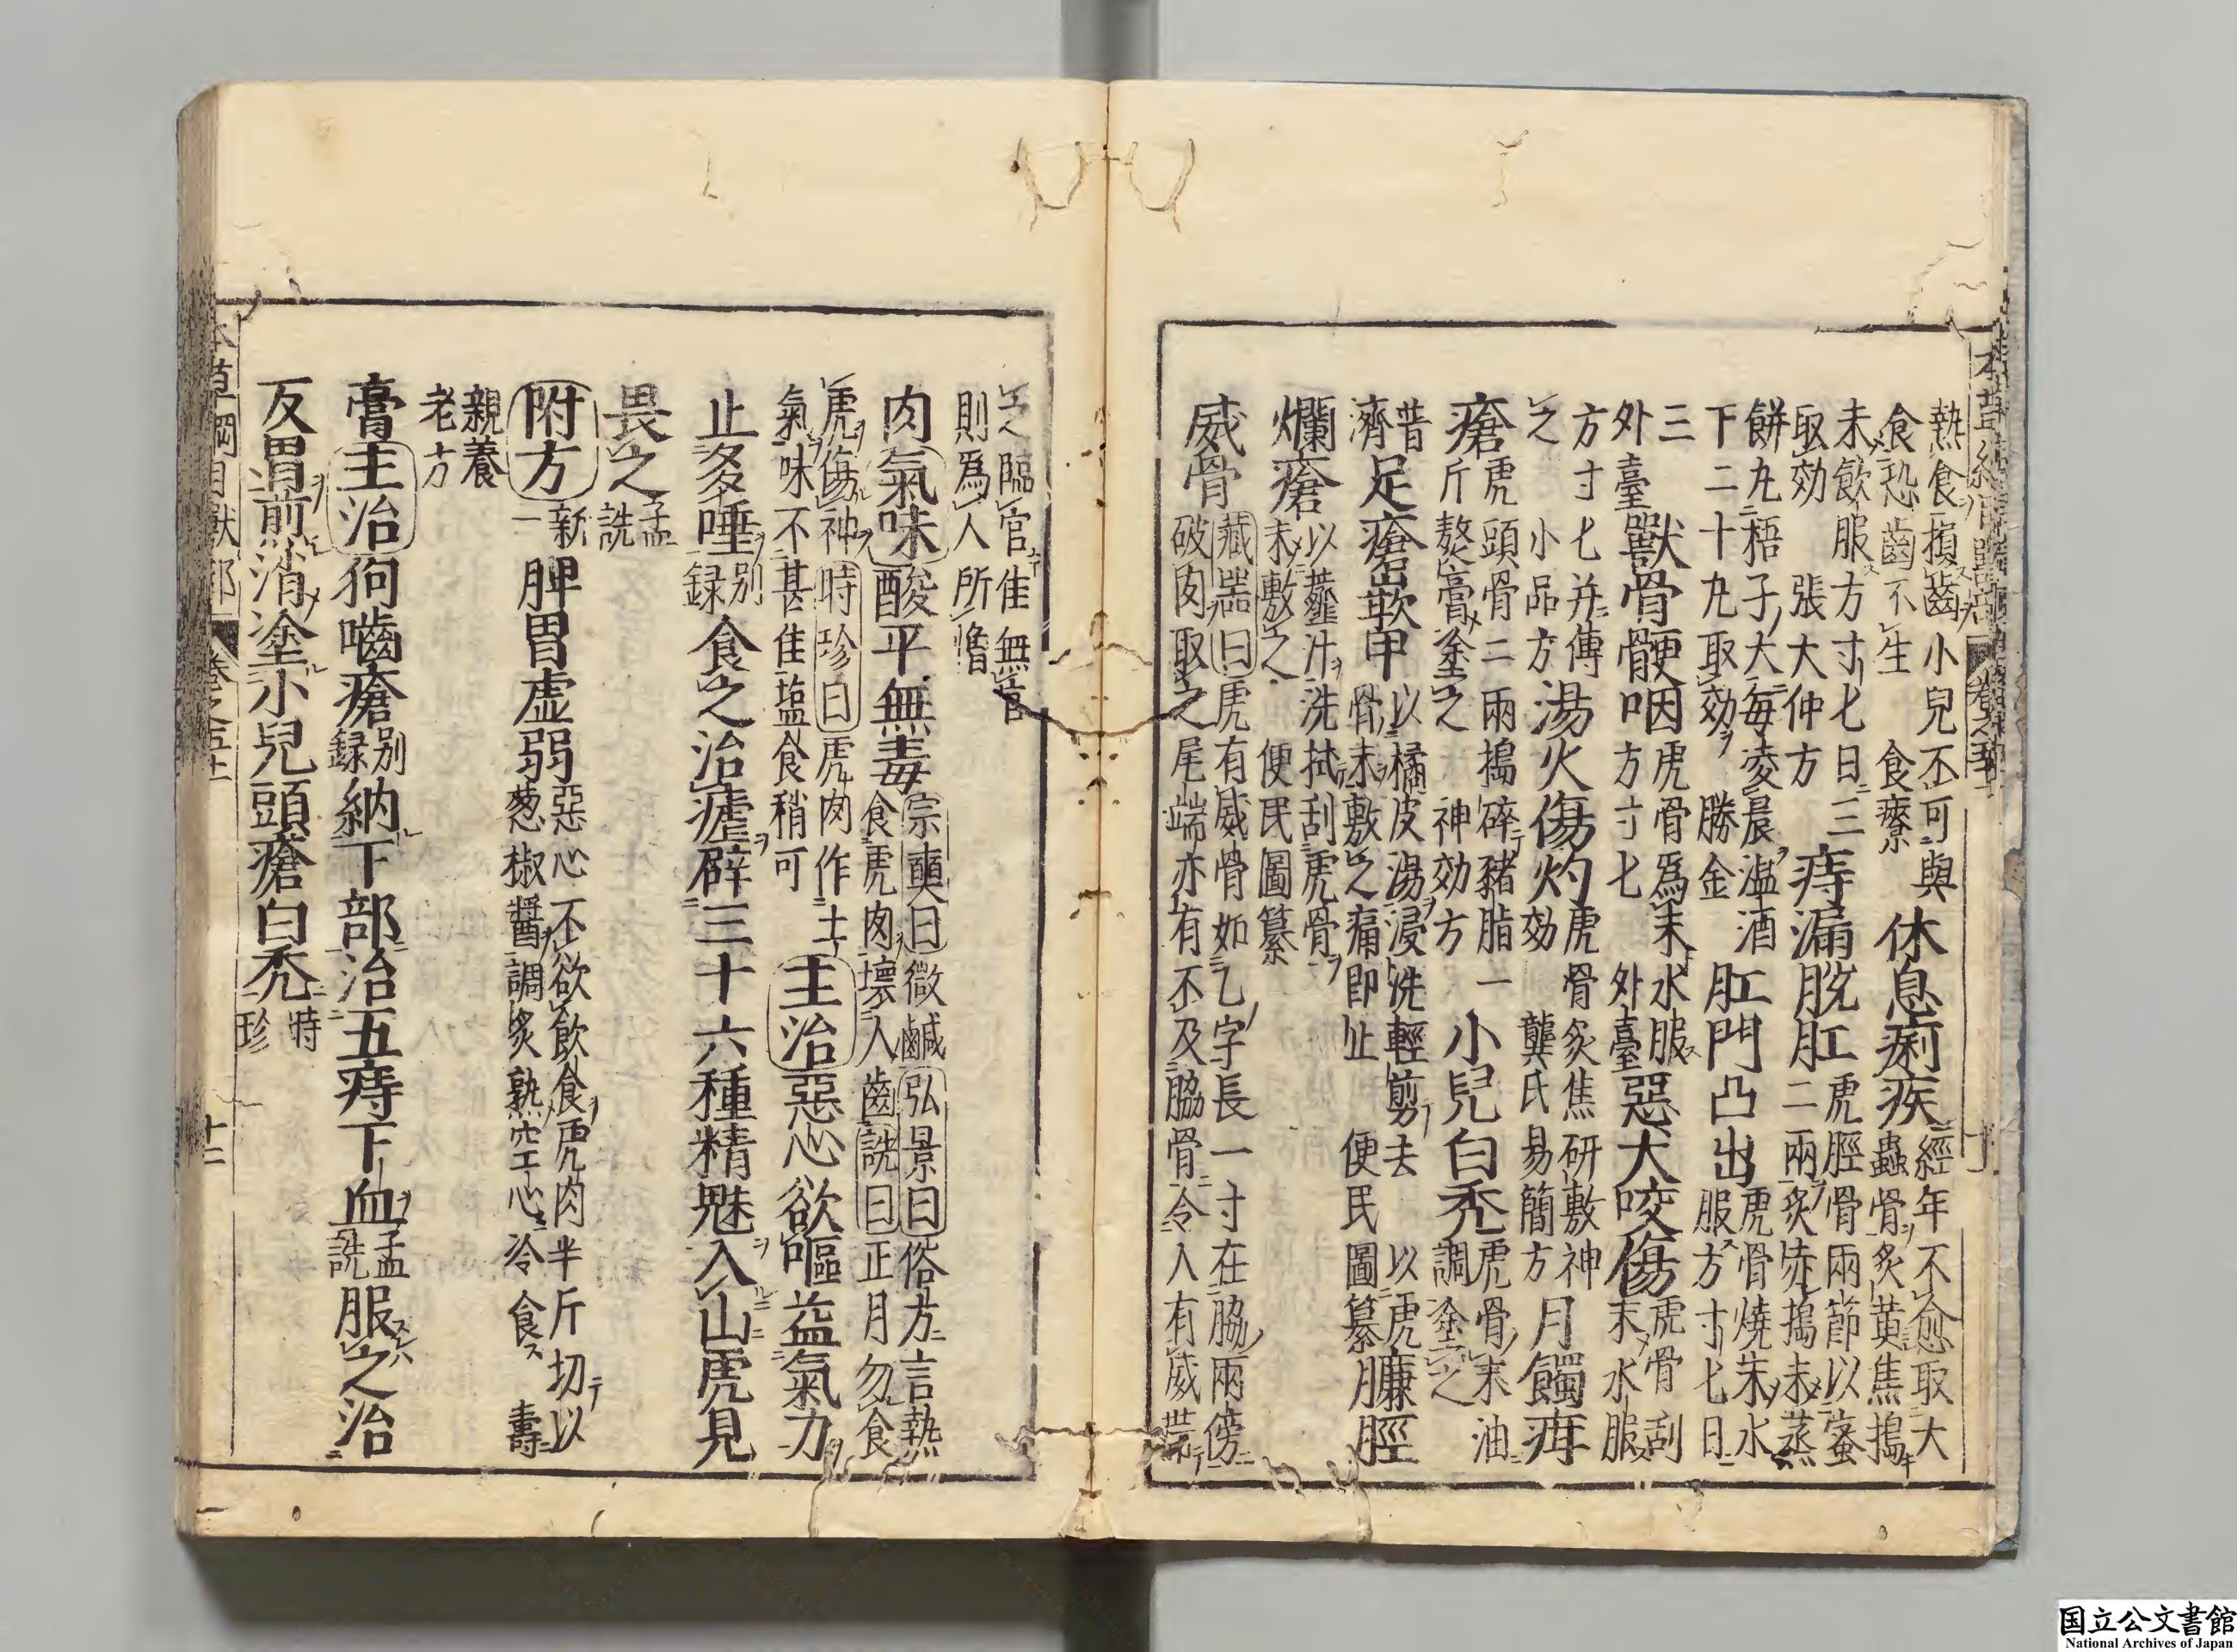 本草綱目獸部 卷之五十一 十一
熱食損齒小兒不可與食恐齒不生 食療 休息痢疾 經年不愈取大蟲骨炙黃焦搗
末飲服方寸七日三取効 張大仲方 痔漏脫肛 虎脛骨兩節以蜜二兩炙赤搗末蒸
餅丸梧子大每凌晨溫酒下二十丸取効 勝金 肛門凸出 虎骨燒末水服方寸七日
三 外臺 獸骨骾咽 虎骨爲末水服方寸七 外臺 惡犬咬傷 虎骨刮末水服
方寸七并傅之 小品方 湯火傷灼 虎骨炙焦研敷神効 龔氏易簡方 月䘐疳
瘡 虎頭骨二兩搗碎豬脂一斤熬膏塗之 神効方 小兒白禿 虎骨末油調塗之
普濟 足瘡嵌甲 以橘皮湯浸洗輕剪去 以虎骨末敷之痛即止 便民圖纂 臁脛
爛瘡 以虀汁洗拭刮虎骨末敷之 便民圖纂
威骨 藏器曰虎有威骨如乙字長一寸在脇兩傍破肉取之尾端亦有不及脇骨令人有威帶
之臨官佳無官則爲人所憎
肉氣味酸平無毒 宗奭曰微鹹 弘景曰俗方言熱食虎肉壞人齒 詵曰正月勿食
虎傷神 時珍曰虎肉作土氣味不甚佳塩食稍可 主治惡心欲嘔益氣力
止多唾 別録 食之治瘧辟三十六種精魅入山虎見
畏之 孟詵
附方 新一 脾胃虚弱 惡心不欲飲食虎肉半斤切以葱椒醤調炙熟空心冷食 壽
親養老方
膏主治狗嚙瘡 別録 納下部治五痔下血 孟詵 服之治
反胃煎消塗小兒頭瘡白禿 時珍
本草綱目獸部 卷之五十一 十二
国立公文書館
National Archives of Japan